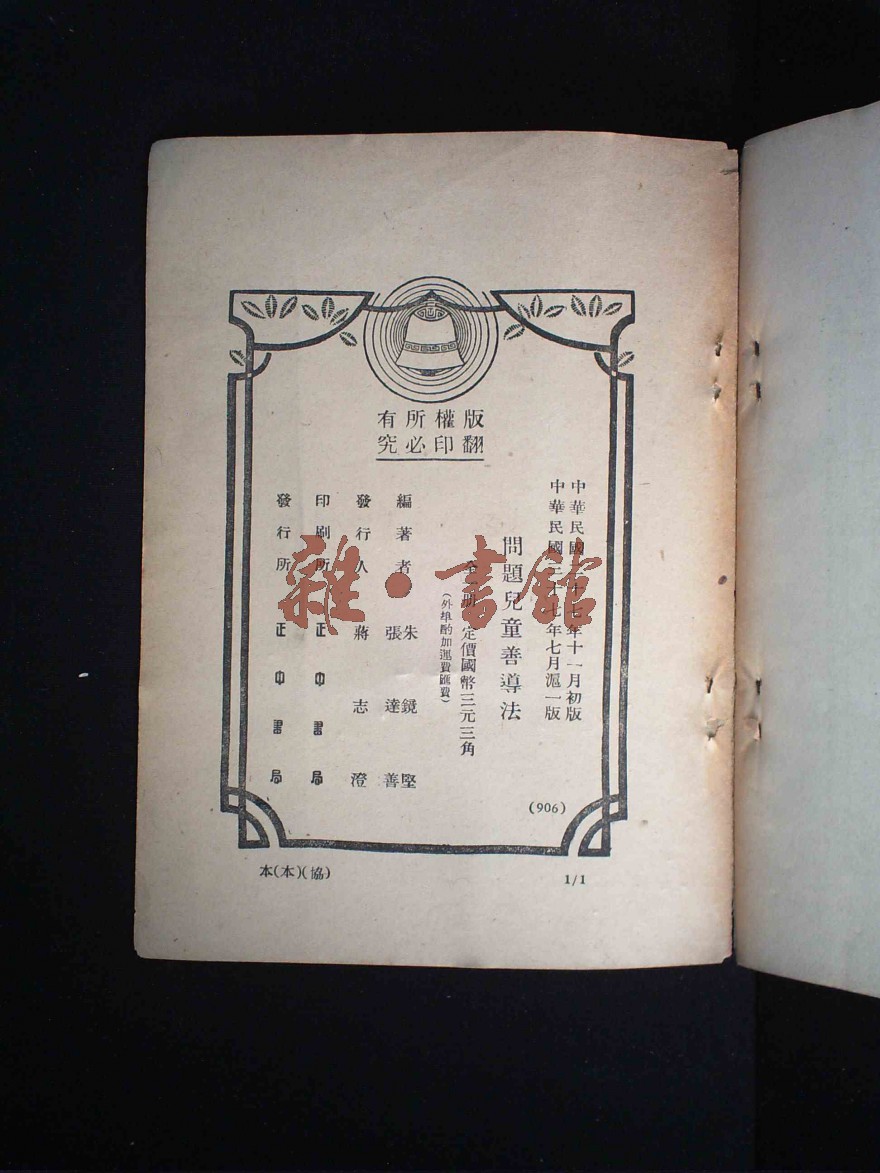 版權所有
翻印必究
中華民國二十七年十一月初版
中華民國三十七年七月滬一版
問題兒童善導法
全一冊 定價國幣三元三角
(外埠酌加運費匯費)
編著者 朱鏡堅
張達善
發行人 蔣志澄
印刷所 正中書局
發行所 正中書局
(906)
本(本)(協)
1/1
雜·書館